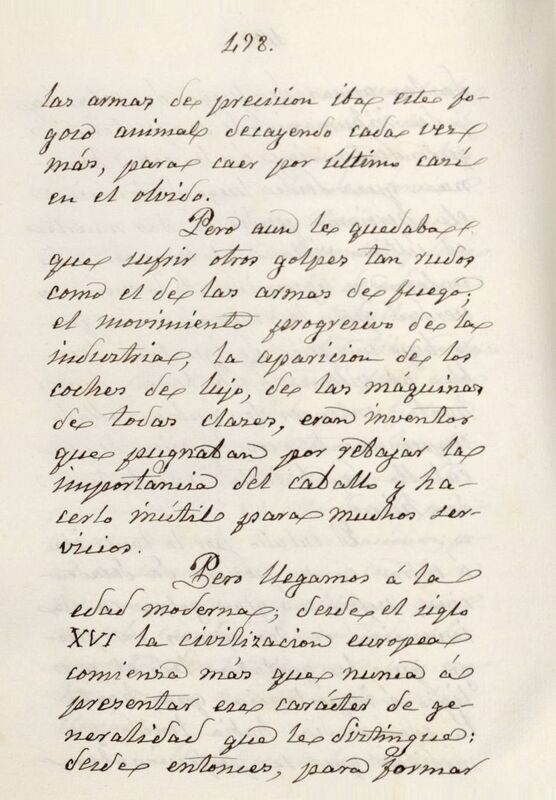 498.
las armas de precision iba este fo-
goso animal decayendo cada vez
más, para caer por último casi
en el olvido.
Pero aun le quedaba
que sufrir otros golpes tan rudos
como el de las armas de fuego;
el movimiento progresivo de la
industria, la aparicion de los
coches de lujo, de las máquinas
de todas clases, eran inventos
que pugnaban por rebajar la
importancia del caballo y ha-
cerlo inútil para muchos ser-
vicios.
Pero llegamos á la
edad moderna; desde el siglo
XVI la civilizacion europea
comienza más que nunca á
presentar ese carácter de ge-
neralidad que le distingue;
desde entonces, para formar